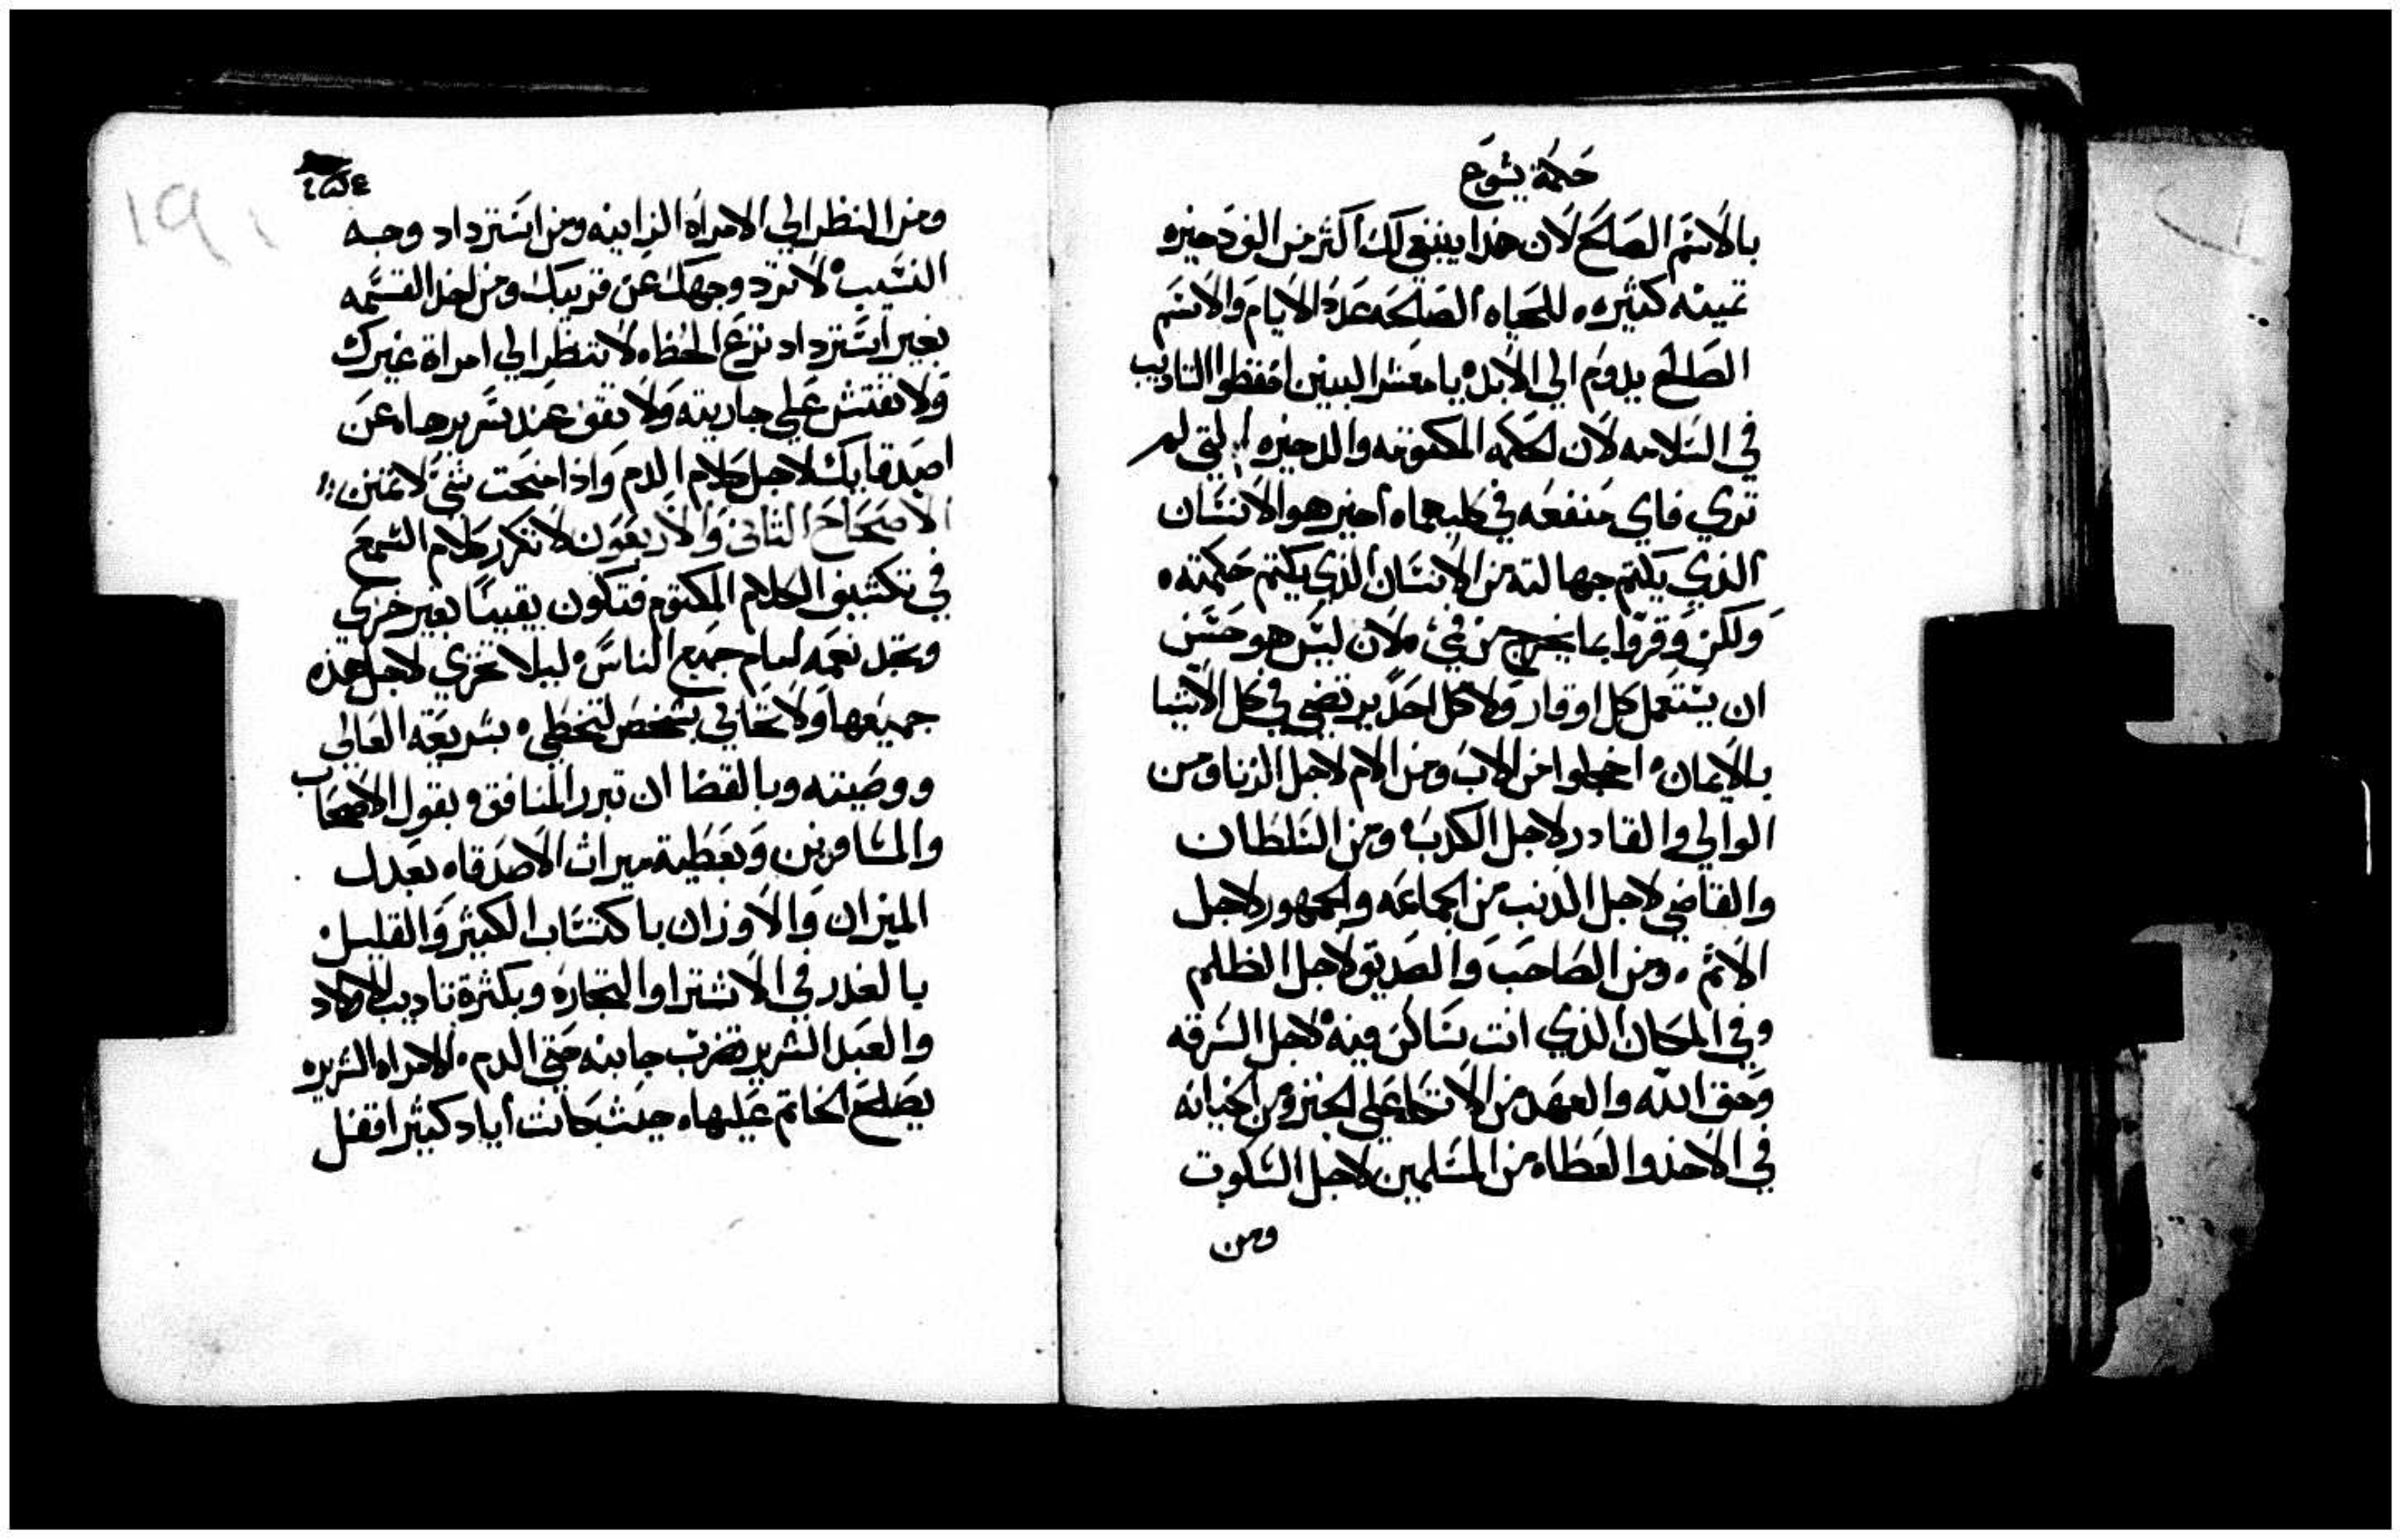 حكمة يشوع
بالاسم الصالح لان هذا ينبغي لك اكثر من الف دخيره
تمينه كثيره للحياه الصالحه عدد الايام والاسم
الصالح يدوم الي الابد يا معشر البنين احفظوا التاديب
في السلامه لان الحكمه المكتومه والدخيره التي لم
تري فاي منفعه في كليهماه اخير هو الانسان
الذي يكتم جهالته من الانسان الذي يكتم حكمته
ولكن وقروا بما يخرج من في لان ليس هو حسن
ان يستعمل كل اوقار ولا كل احد يرتضي في كل الاشيا
بالايمان اخجلوا من الاب ومن الام لاجل الزنا ومن
الوالي والقادر لاجل الكدب ومن السلطان
والقاضي لاجل الذنب من الجماعه والجمهور لاجل
الاثم ومن الصاحب والصديق لاجل الظلم
وفي المكان الذي انت ساكن فيه لاجل السرقه
وحق الله والعهد من الاتكا على الخبز ومن الخيانه
في الاخذ والعطاه من المسلمين لاجل السكوت
ومن
ومن النظر الي الامراه الزانيه ومن استرداد وجه
النسيب لا ترد وجهك عن قريبك ومن اخذ القسمه
بغير استرداد نزع الحظاه لا تنظر الي امراة غيرك
ولا تفتش علي جاريته ولا تقف عند سريرها عن
اصدقايك لاجل كلام الدم واذا منحت شي لا تمنن
الاصحاح الثاني والاربعون لا تكرر كلام السمع
في تكشيف الكلام المكتوم فتكون يقينا بغير خزي
وتجد نعمه امام جميع الناس ليلا تخزي لاجل هذه
جميعها ولا تحابي بشخص لتخطي بشريعة العالي
ووصيته وبالقضا ان تبرر المنافق بقول الاصحاب
والمسافرين وبعطية ميراث الاصدقاه بعدل
الميزان والاوزان باكتساب الكثير والقليل
بالغدر في الاشترا والتجاره وبكثرة تاديب الاولاد
والعبد الشرير تضرب جانبه حتي الدم الامراه الشريره
يصلح الخاتم عليها حيث كانت اياد كثير اقفل